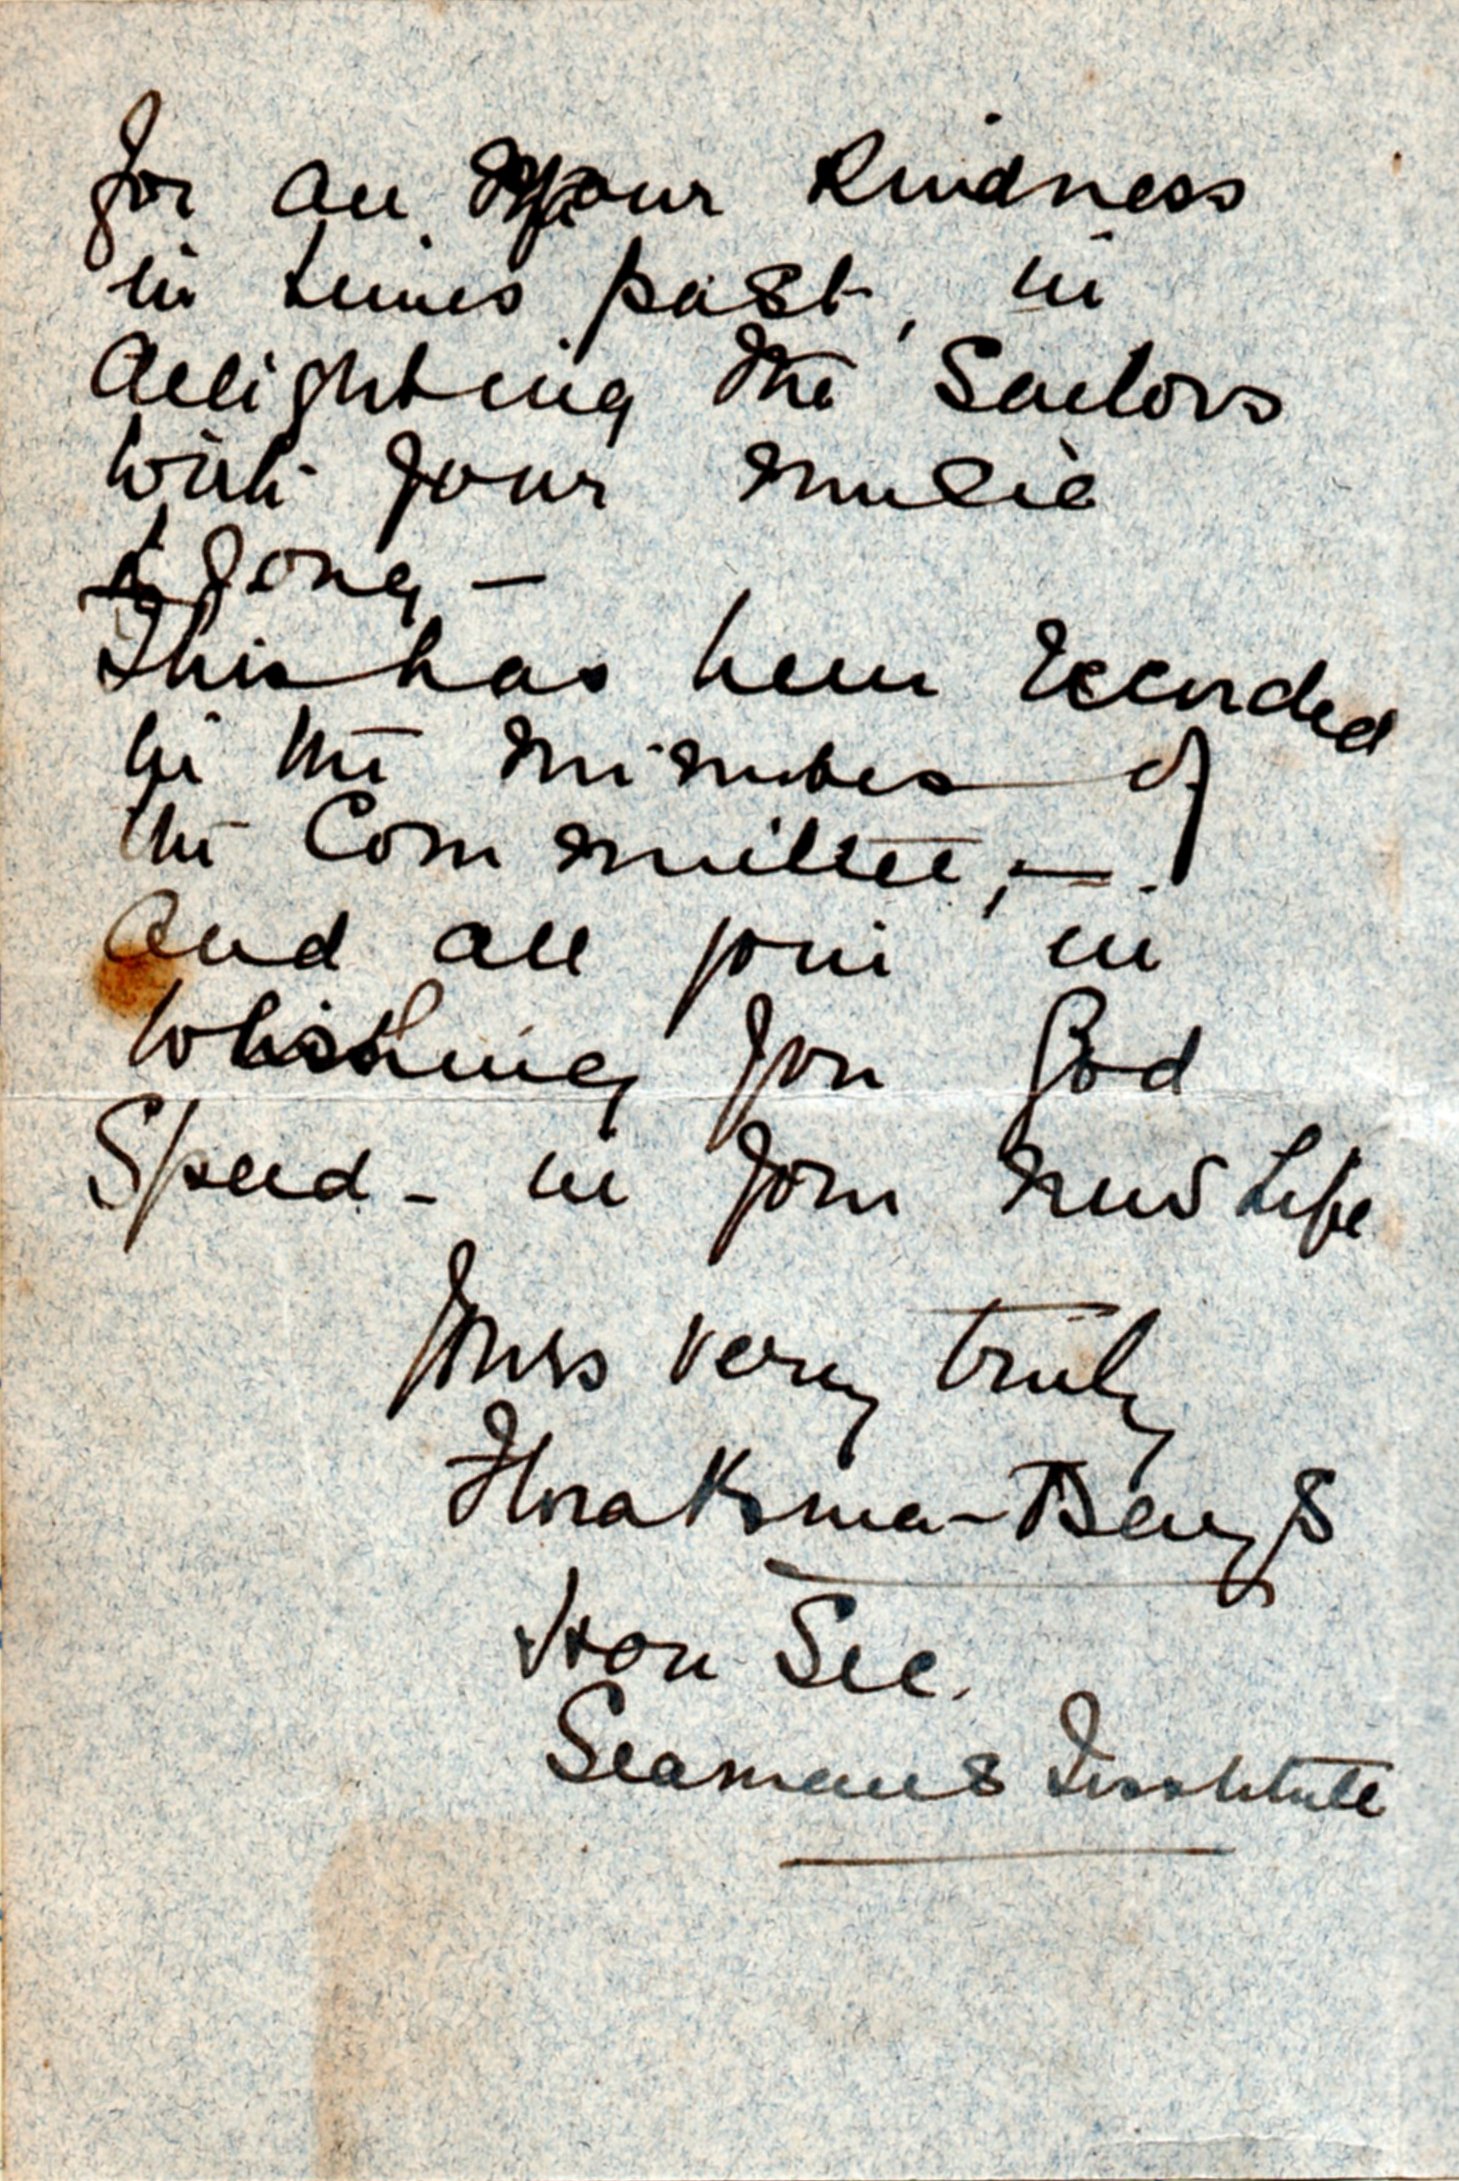 for all your kindness
in times past, in
delighting the Sailors
with your music
& song —
This has been recorded
in the minutes of
the Committee, —
and all join in
whishing you God
Speed - in your new Life
Yours very truly
Hon Sec.
Seamans Institute